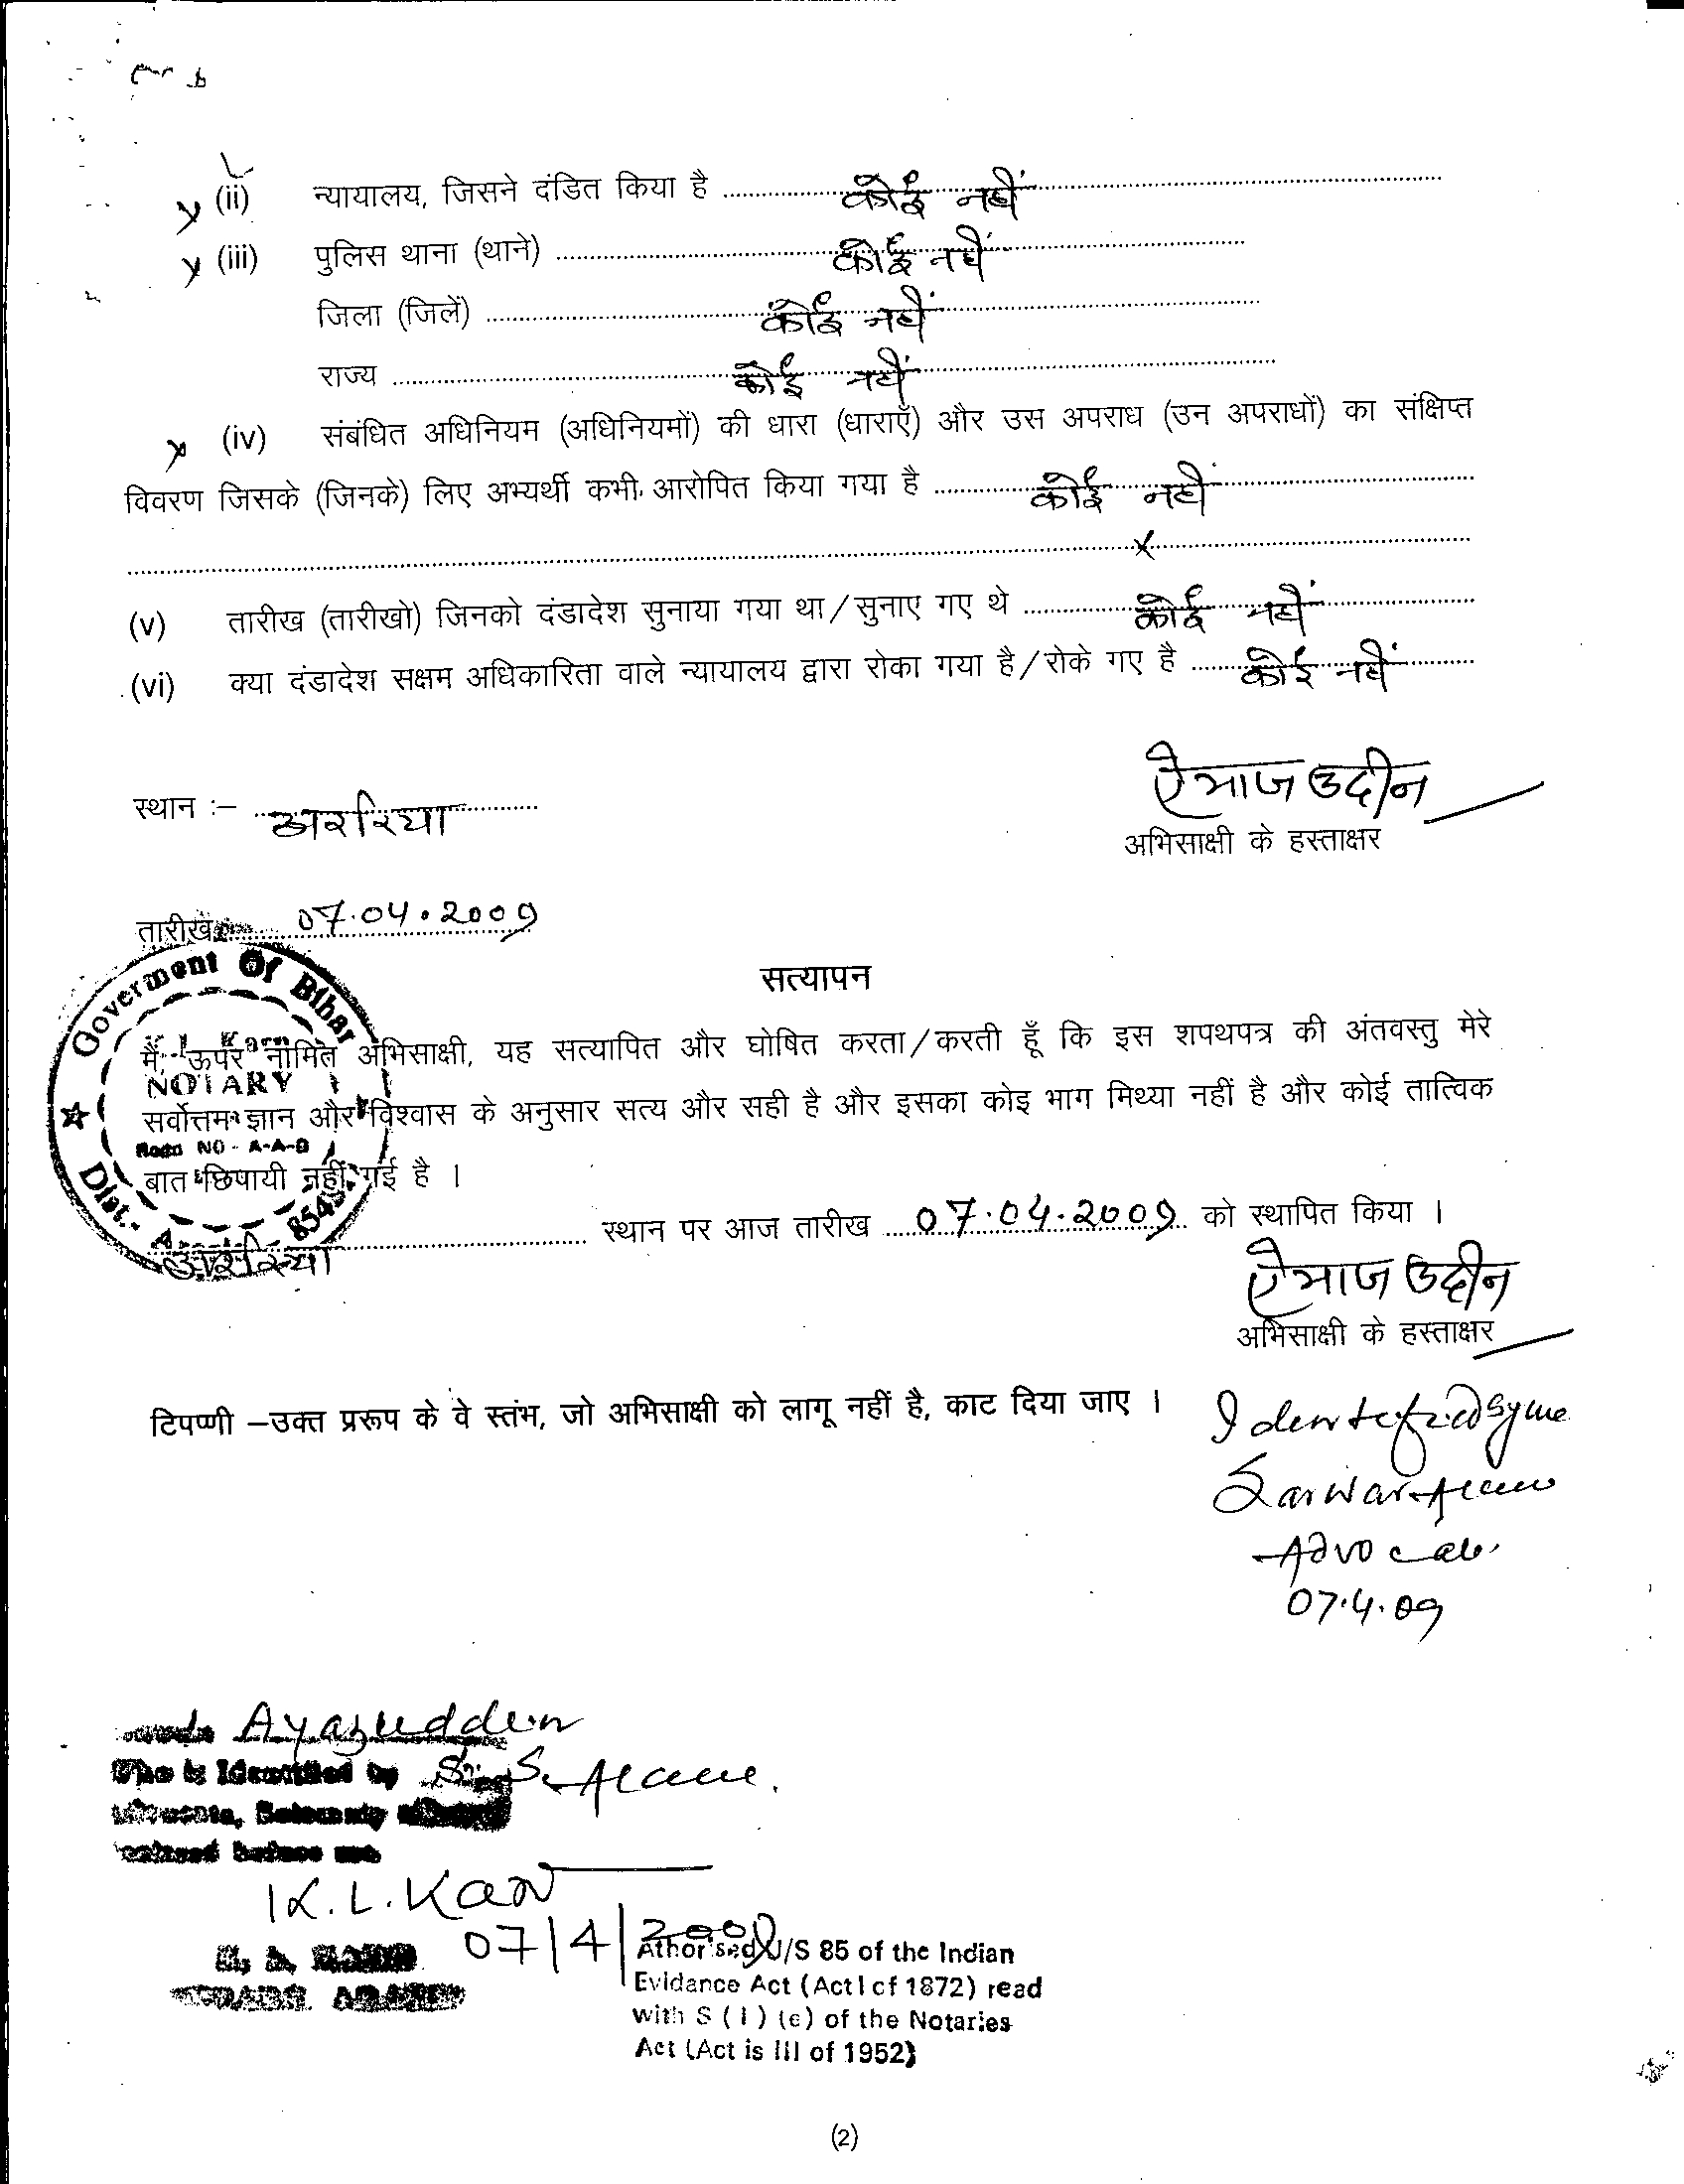 (ii) न्यायालय, जिसने दंडित किया है .......... कोई नहीं
(iii) पुलिस थाना (थाने) .......... कोई नहीं
जिला (जिलें) .......... कोई नहीं
राज्य .......... कोई नहीं
(iv) संबंधित अधिनियम (अधिनियमों) की धारा (धाराएँ) और उस अपराध (उन अपराधों) का संक्षिप्त
विवरण जिसके (जिनके) लिए अभ्यर्थी कभी आरोपित किया गया है .......... कोई नहीं
.......... x
(v) तारीख (तारीखो) जिनको दंडादेश सुनाया गया था/सुनाए गए थे .......... कोई नहीं
(vi) क्या दंडादेश सक्षम अधिकारिता वाले न्यायालय द्वारा रोका गया है/रोके गए है .......... कोई नहीं
ऐयाज उद्दीन
स्थान :– अररिया
अभिसाक्षी के हस्ताक्षर
तारीख 07.04.2009
Goverment Of Bihar
सत्यापन
मैं, ऊपर नामित अभिसाक्षी, यह सत्यापित और घोषित करता/करती हूँ कि इस शपथपत्र की अंतवस्तु मेरे
NOTARY
सर्वोत्तम ज्ञान और विश्वास के अनुसार सत्य और सही है और इसका कोइ भाग मिथ्या नहीं है और कोई तात्विक
NO - A-A-
बात छिपायी नहीं गई है ।
Dist.-
अररिया .......... स्थान पर आज तारीख 07.04.2009 को स्थापित किया ।
ऐयाज उद्दीन
अभिसाक्षी के हस्ताक्षर
टिपप्णी –उक्त प्ररूप के वे स्तंभ, जो अभिसाक्षी को लागू नहीं है, काट दिया जाए ।
Identified by me
Sarwar Alam
Advocate
07.4.09
Ayazuddin
Who is Identified by S. Alam.
before me
K. L. Karn
07/4/2009
Athorised U/S 85 of the Indian
Evidance Act (Act I of 1872) read
with S (1) (e) of the Notaries
Act (Act is III of 1952)
(2)